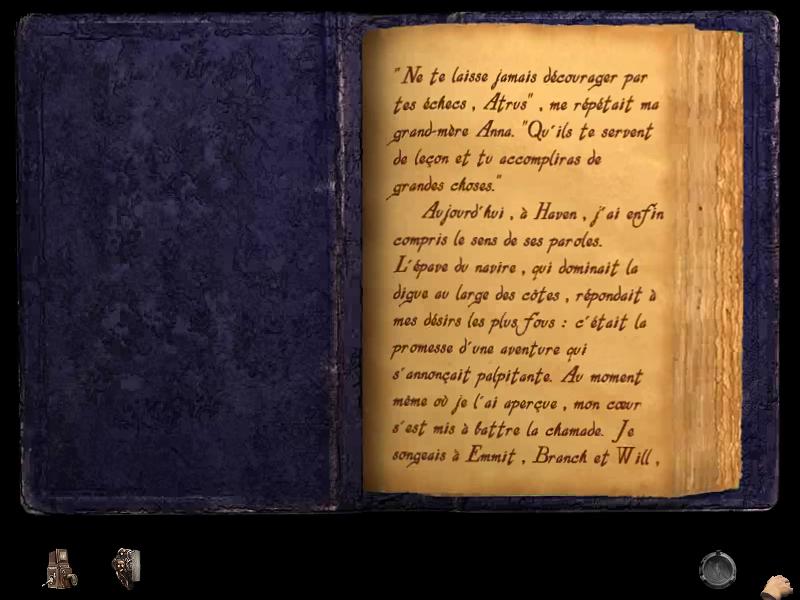 "Ne te laisse jamais décourager par
tes échecs, Atrus", me répétait ma
grand-mère Anna. "Qu'ils te servent
de leçon et tu accompliras de
grandes choses."
Aujourd'hui, à Haven, j'ai enfin
compris le sens de ses paroles.
L'épave du navire, qui dominait la
digue au large des côtes, répondait à
mes désirs les plus fous : c'était la
promesse d'une aventure qui
s'annonçait palpitante. Au moment
même où je l'ai aperçue, mon cœur
s'est mis à battre la chamade. Je
songeais à Emmit, Branch et Will,